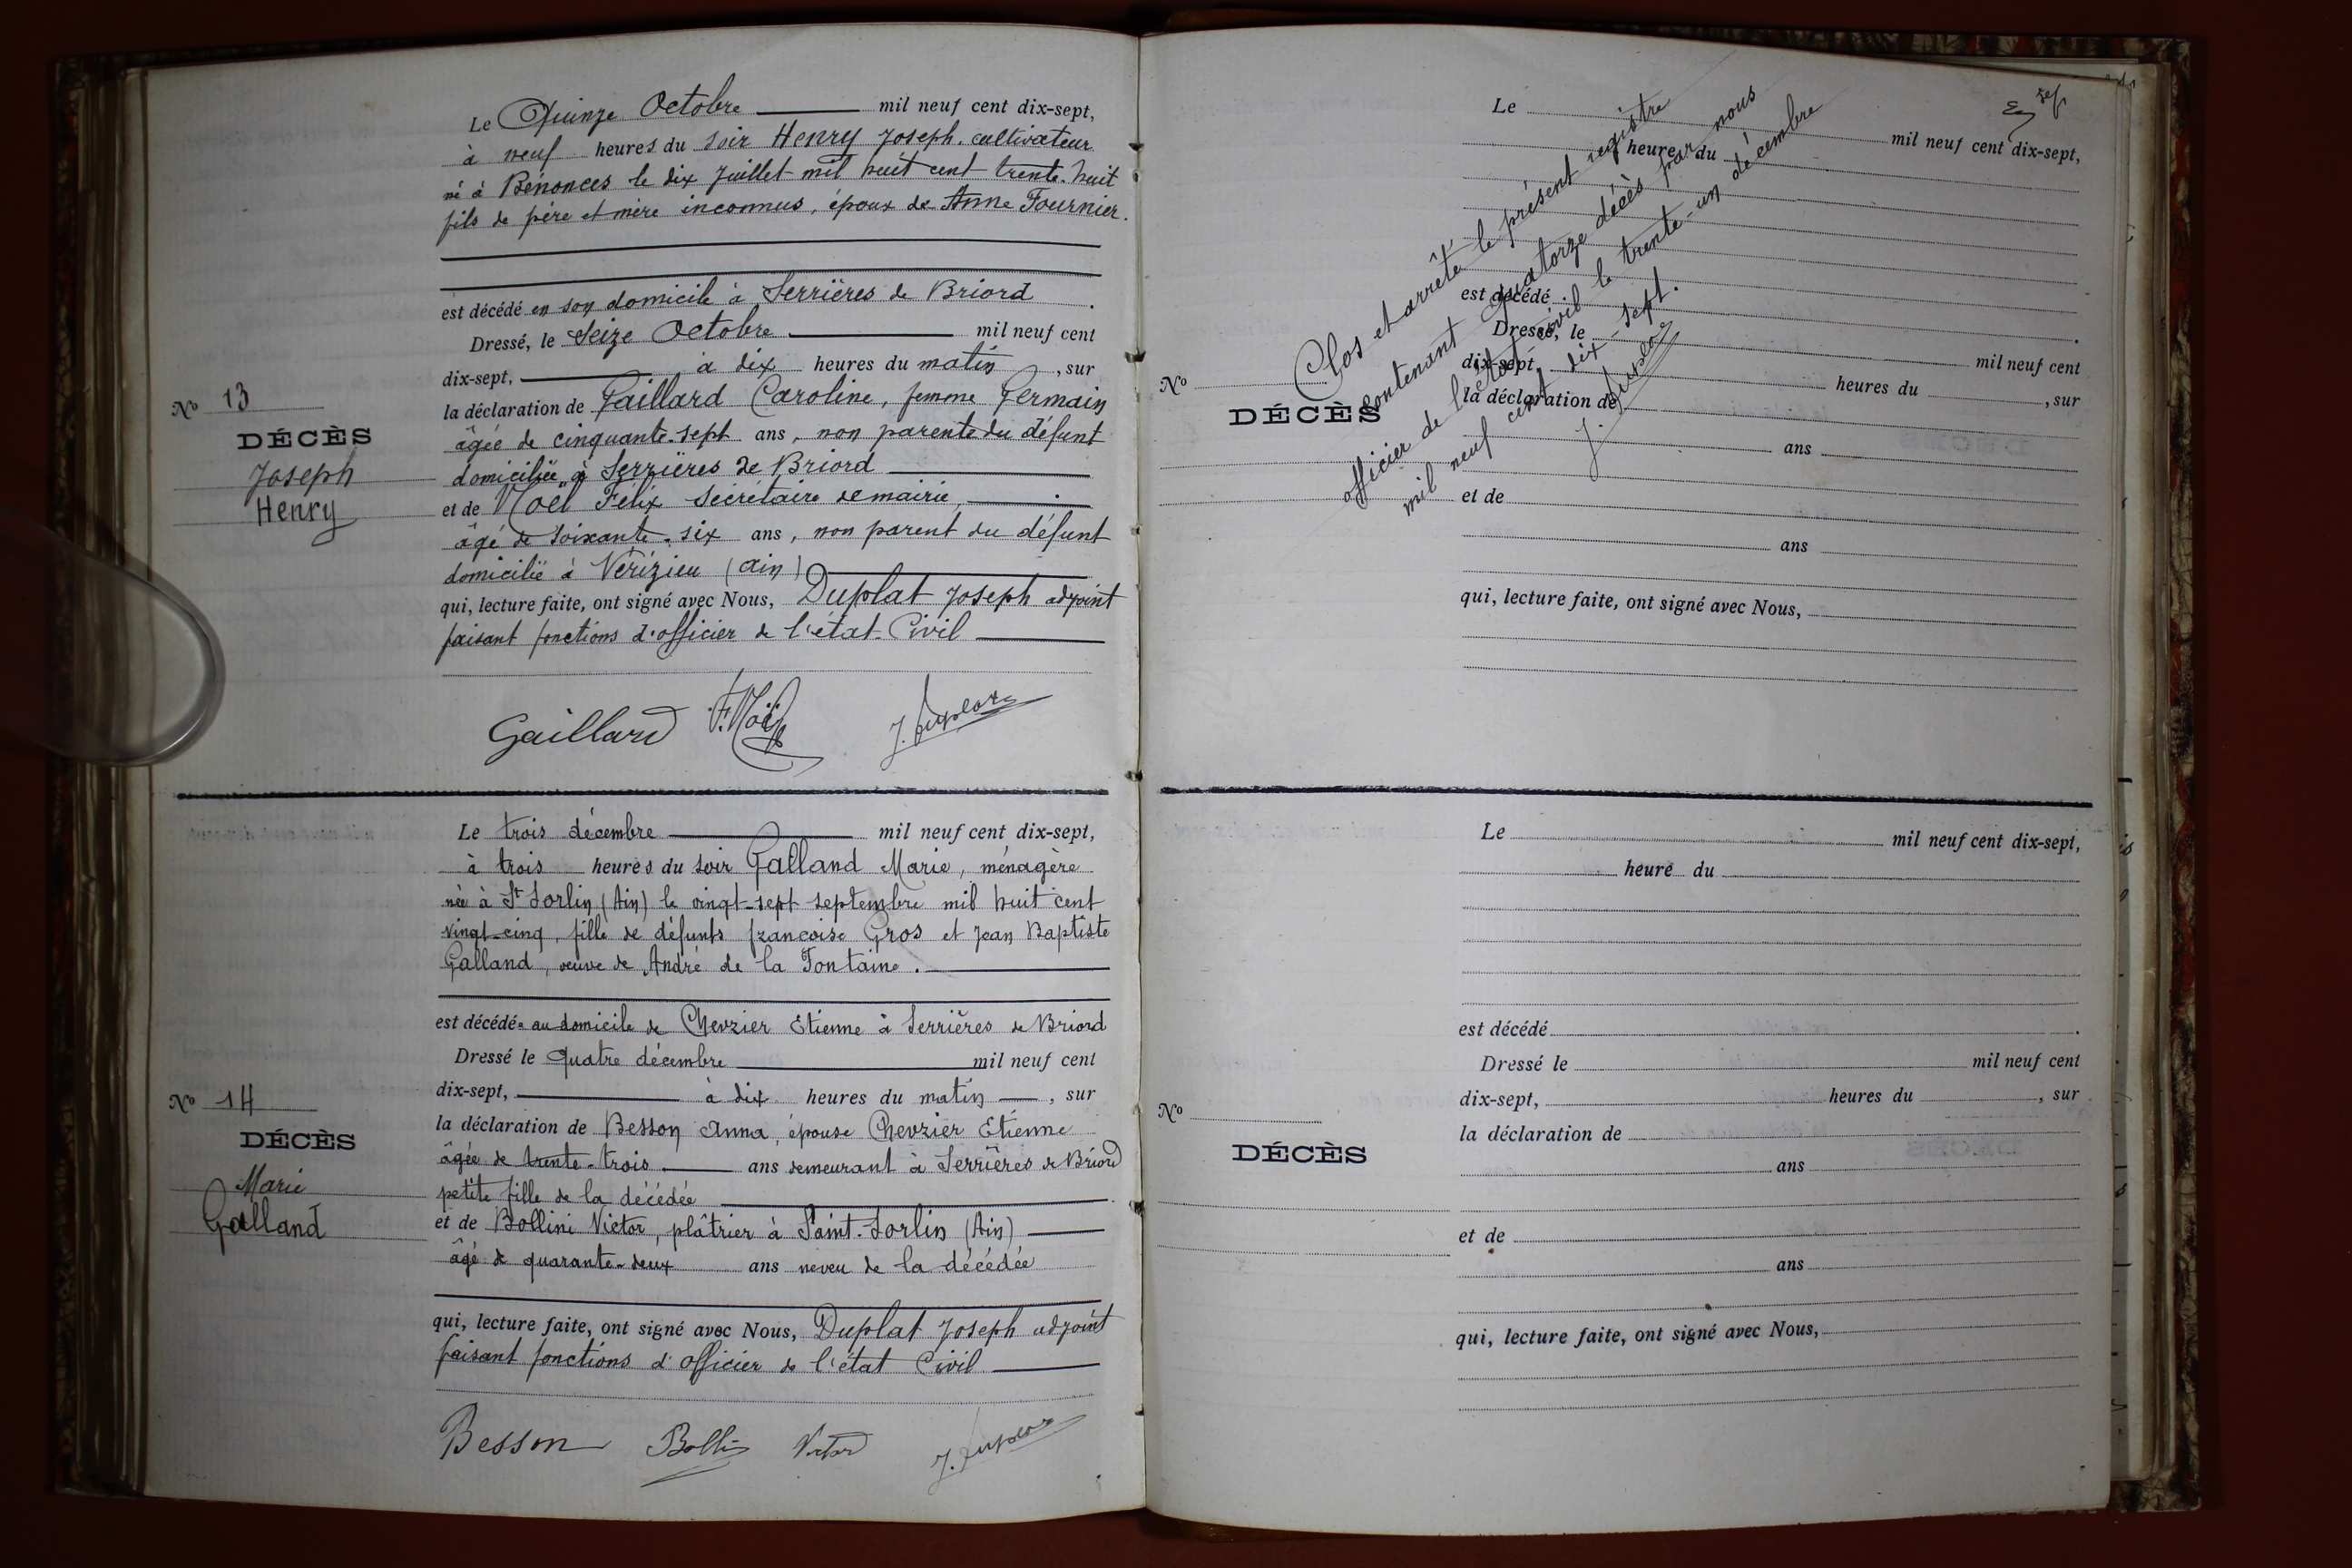 Le Quinze Octobre mil neuf cent dix-sept,
à neuf heures du soir Henry Joseph, cultivateur
né à Bénonces le dix Juillet mil huit cent trente-huit
fils de père et mère inconnus, époux de Anne Fournier.
est décédé en son domicile à Serrières de Briord.
Dressé, le Seize Octobre mil neuf cent
dix-sept, à dix heures du matin, sur
la déclaration de Gaillard Caroline, femme Germain
âgée de cinquante-sept ans, non parente du défunt
domiciliée à Serrières de Briord
et de Noël Félix Secrétaire de mairie
âgé de soixante-six ans, non parent du défunt
domicilié à Vérizieu (Ain)
qui, lecture faite, ont signé avec Nous, Duplat Joseph adjoint
faisant fonctions d'officier de l'état-Civil
Gaillard F. Noël J. Duplat
No 13
DÉCÈS
Joseph
Henry
Le trois décembre mil neuf cent dix-sept,
à trois heures du soir Galland Marie, ménagère
née à St Sorlin (Ain) le vingt-sept septembre mil huit cent
vingt-cinq, fille de défunts françoise Gros et Jean Baptiste
Galland, veuve de André de la Fontaine.
est décédée au domicile de Chevzier Etienne à Serrières de Briord
Dressé le quatre décembre mil neuf cent
dix-sept, à dix heures du matin, sur
la déclaration de Besson Anna, épouse Chevzier Etienne
âgée de trente-trois ans demeurant à Serrières de Briord
petite fille de la décédée
et de Bollini Victor, plâtrier à Saint-Sorlin (Ain)
âgé de quarante-deux ans neveu de la décédée
qui, lecture faite, ont signé avec Nous, Duplat Joseph adjoint
faisant fonctions d'officier de l'état Civil
Besson Bollini Victor J. Duplat
No 14
DÉCÈS
Marie
Galland
Le mil neuf cent dix-sept,
heure du
est décédé.
Dressé, le mil neuf cent
dix-sept heures du, sur
la déclaration de
ans
et de
ans
qui, lecture faite, ont signé avec Nous,
No
DÉCÈS
Clos et arrêté le présent registre
contenant quatorze décès par nous
officier de l'état-civil le trente-un décembre
mil neuf cent dix-sept.
J. Duplat
Le mil neuf cent dix-sept,
heure du
est décédé.
Dressé le mil neuf cent
dix-sept, heures du, sur
la déclaration de
ans
et de
ans
qui, lecture faite, ont signé avec Nous,
No
DÉCÈS